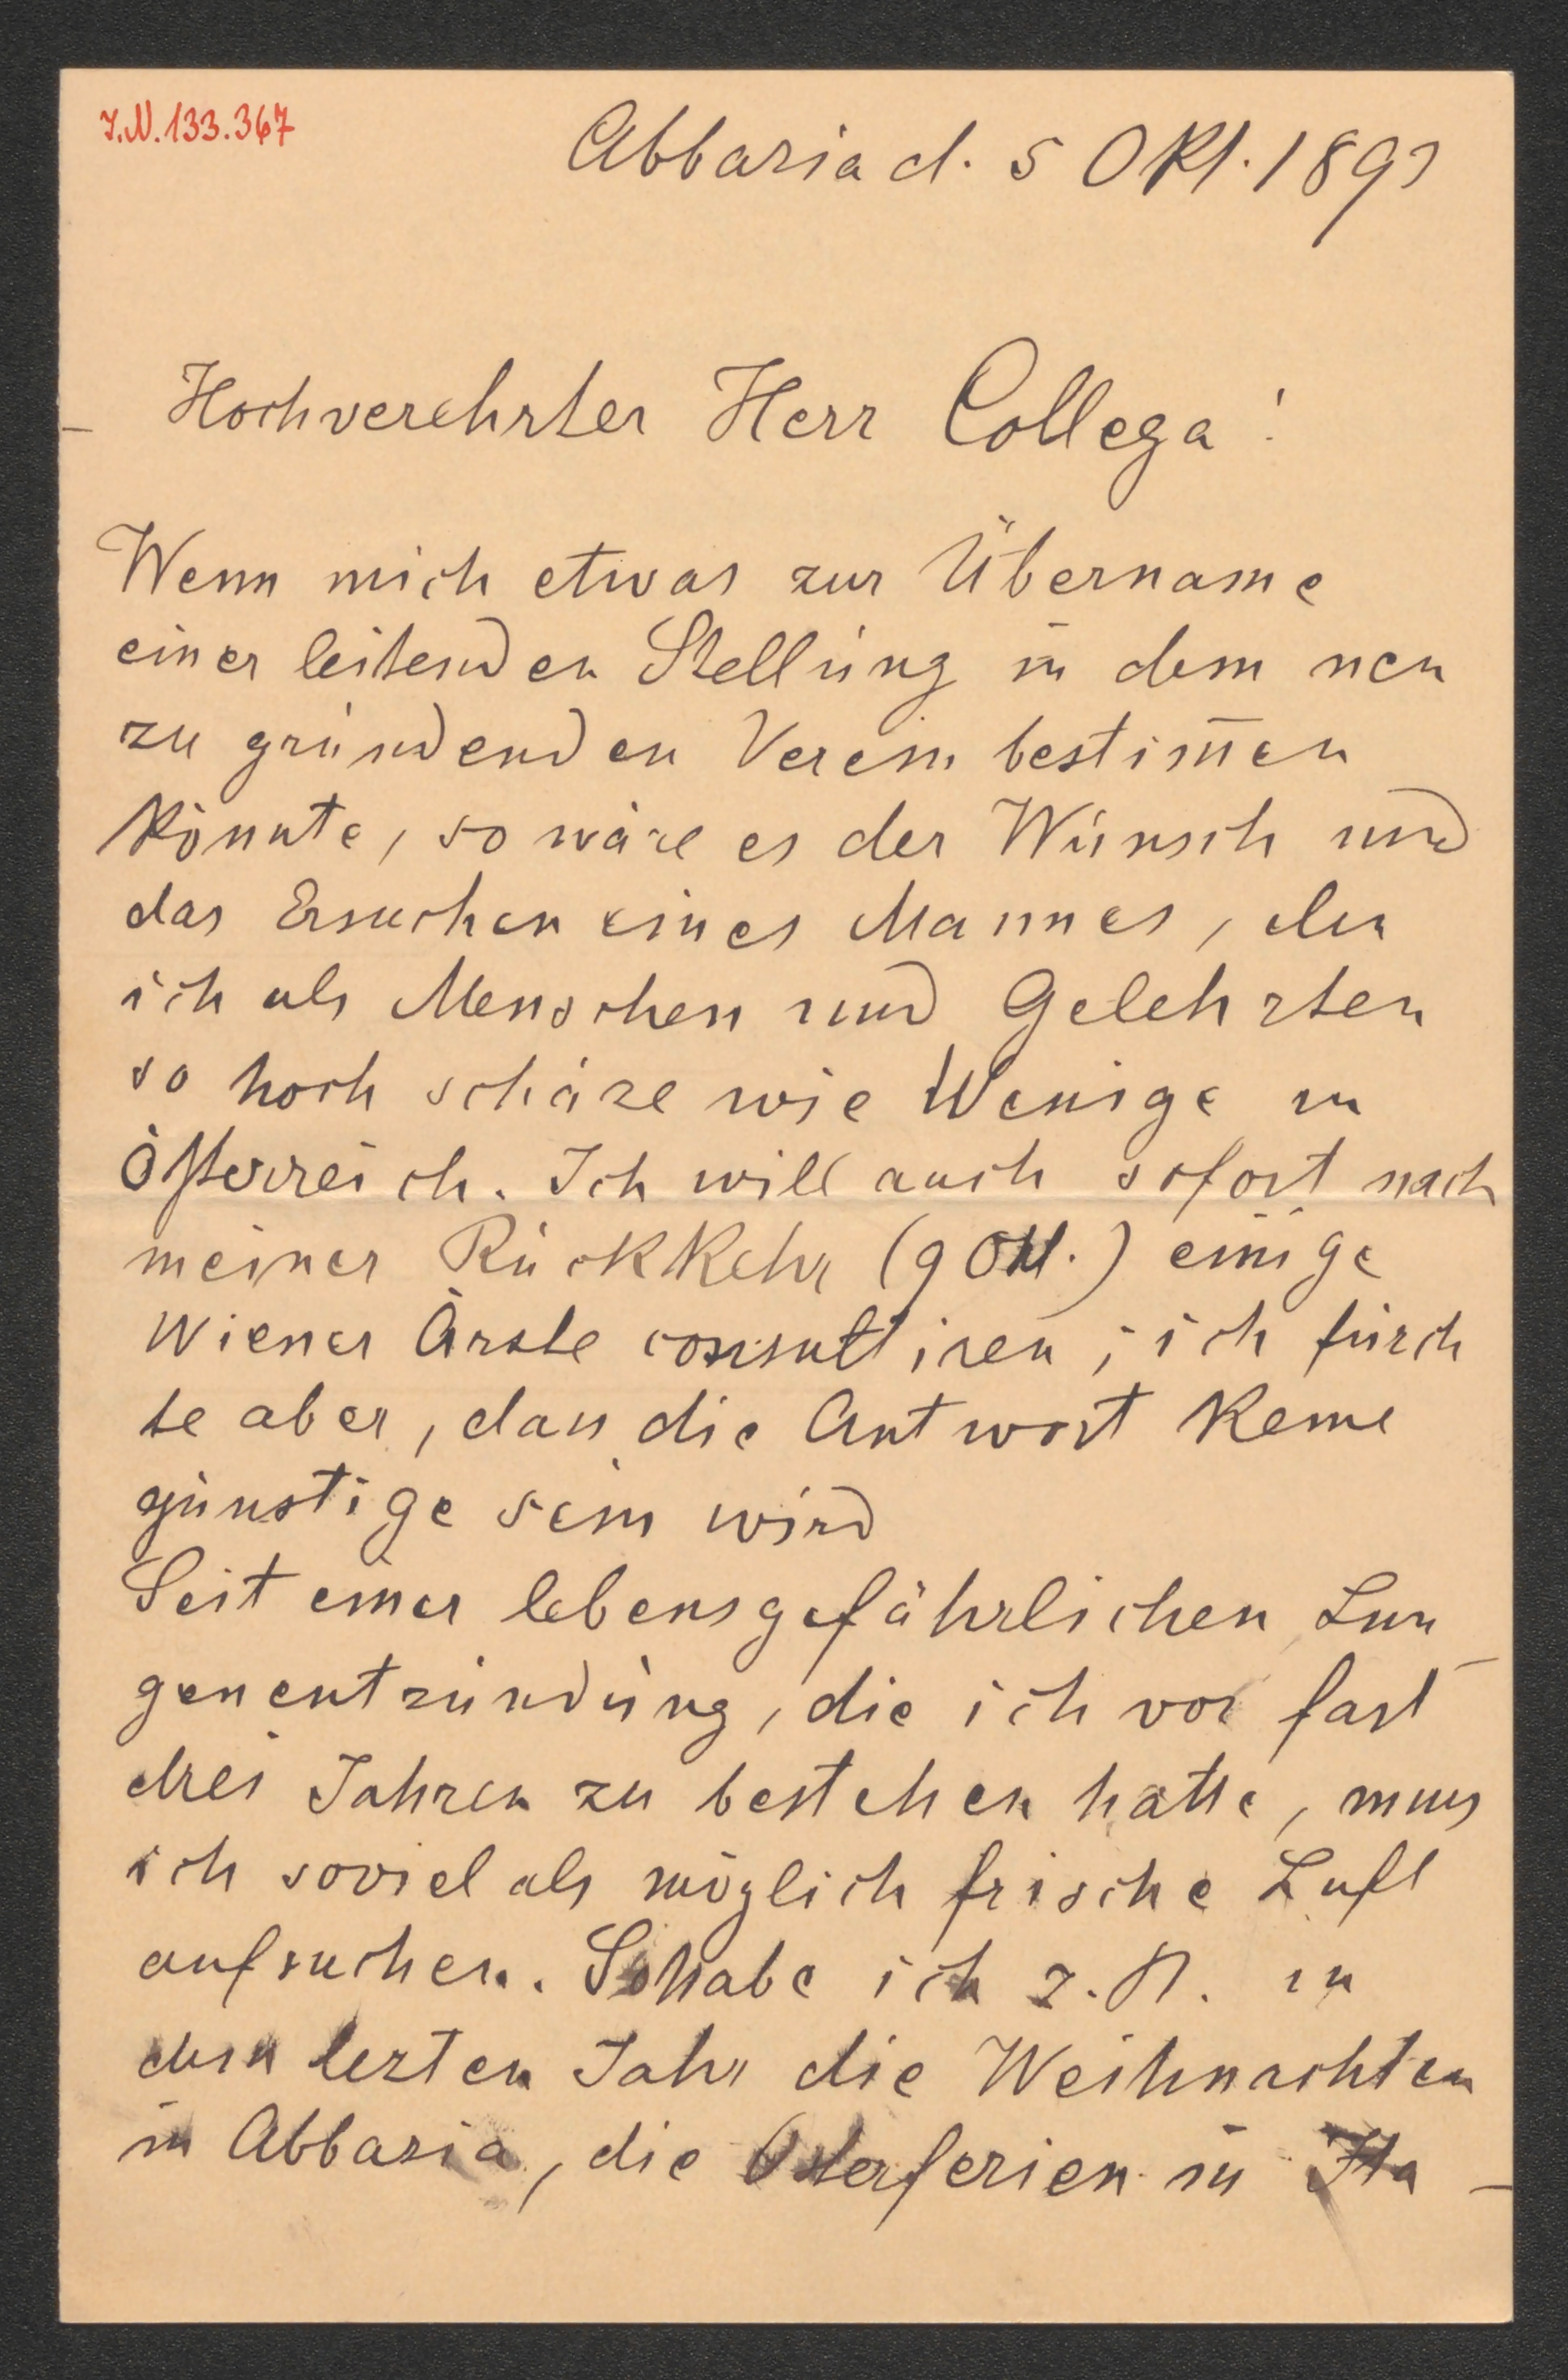 I.N. 133.367
Abbazia d. 5 Okt. 1893
Hochverehrter Herr Collega!
Wenn mich etwas zur Übername
einer leitenden Stellung in dem neu
zu gründenden Verein bestim̅en
könnte, so wäre es der Wunsch und
das Ersuchen eines Mannes, den
ich als Menschen und Gelehrten
so hoch schäze wie Wenige in
Österreich. Ich will auch sofort nach
meiner Rückkehr (9 Okt.) einige
Wiener Ärzte consultiren; ich fürch
te aber, dass die Antwort keine
günstige sein wird
Seit einer lebensgefährlichen Lun
genentzündung, die ich vor fast
drei Jahren zu bestehen hatte, muss
ich soviel als möglich frische Luft
aufsuchen. So habe ich z. B. in
dem lezten Jahr die Weihnachten
in Abbazia, die Osterferien in Ita-